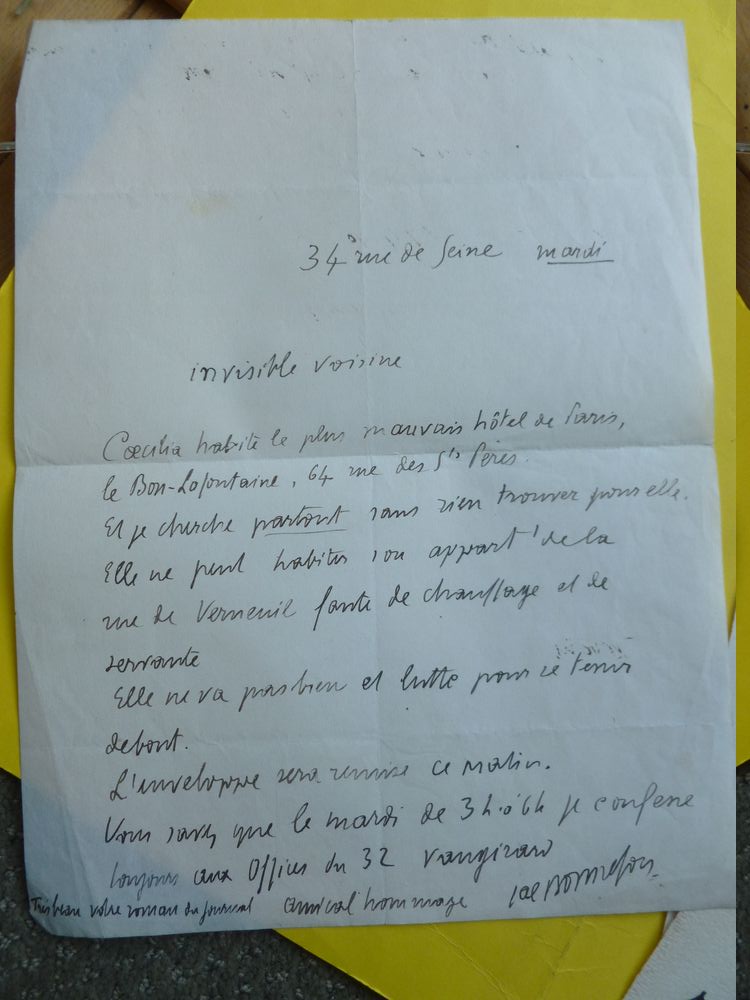 34 rue de Seine mardi
invisible voisine
Cœcilia habite le plus mauvais hôtel de Paris,
le Bon-Lafontaine, 64 rue des Sts Pères.
Et je cherche partout sans rien trouver pour elle.
Elle ne peut habiter son appart' de la
rue de Verneuil faute de chauffage et de
servante
Elle ne va pas bien et lutte pour se tenir
debout.
L'enveloppe sera remise ce matin.
Vous savez que le mardi de 3h à 6h je confesse
toujours aux Offices du 32 Vaugirard
Très beau votre roman du journal amical hommage